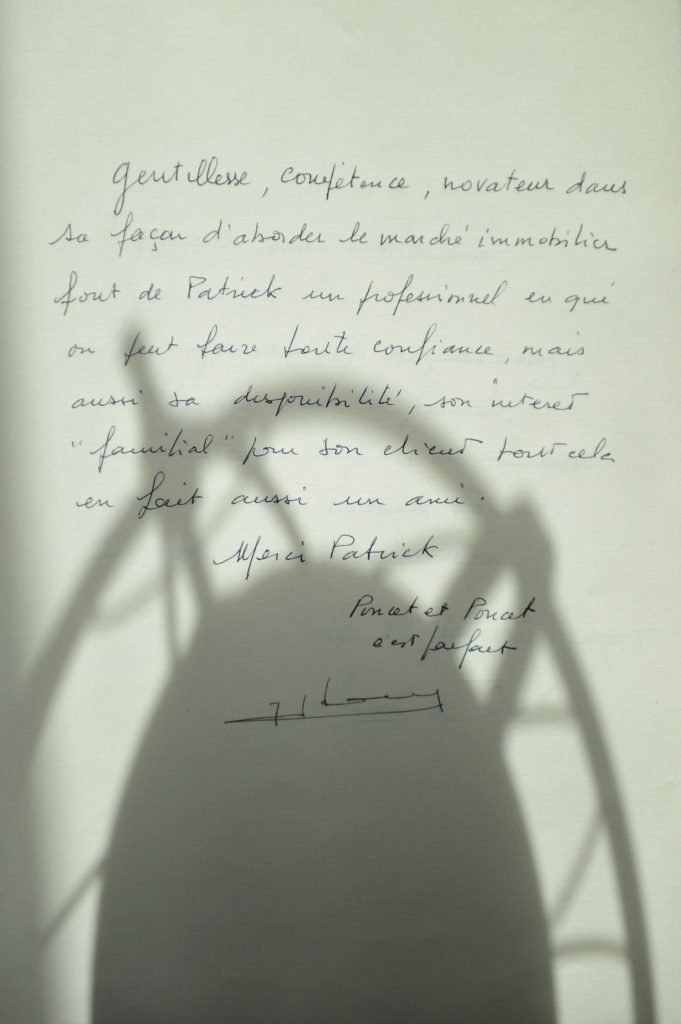 Gentillesse, compétence, novateur dans
sa façon d'aborder le marché immobilier
font de Patrick un professionnel en qui
on peut faire toute confiance, mais
aussi sa disponibilité, son interet
"familial" pour son client tout cela
en fait aussi un ami.
Merci Patrick
Poncet et Poncet
c'est parfait